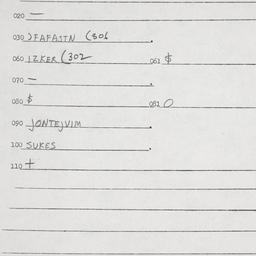 020 —
030 JFAFAJTN (806 .
060 IZKER (302 061 $
070 — .
080 $ 081 O
090 JONTEJVIM .
100 SUKES .
110 +